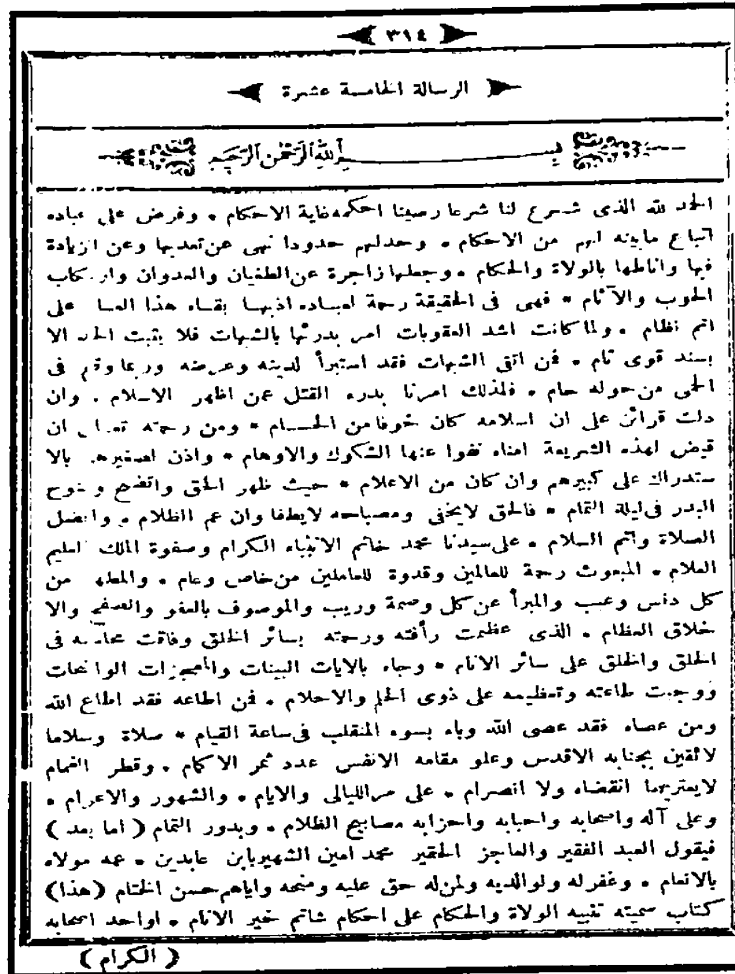 ٣١٤
الرسالة الخامسة عشرة
بسم الله الرحمن الرحيم
الحمد لله الذى شرع لنا شرعا رصينا احكمه غاية الاحكام • وفرض على عباده
اتباع مابينه لهم من الاحكام • وحدلهم حدودا نهى عن تعديها وعن الزيادة
فيها واناطها بالولاة والحكام • وجعلها زاجرة عن الطغيان والعدوان وارتكاب
الحوب والآثام • فهى فى الحقيقة رحمة لعباده اذبها بقاء هذا العالم على
اتم نظام • ولما كانت اشد العقوبات امر بدرئها بالشبهات فلا يثبت الحد الا
بسند قوى تام • فمن اتقى الشبهات فقد استبرأ لدينه وعرضه وربما وقع فى
الحمى من حوله حام • فلذلك امرنا بدرء القتل عمن اظهر الاسلام • وان
دلت قرائن على ان اسلامه كان خوفا من الحسام • ومن رحمته تعالى ان
قيض لهذه الشريعة امناء نفوا عنها الشكوك والاوهام • واذن لصغيرهم بالا
ستدراك على كبيرهم وان كان من الاعلام • حيث ظهر الحق واتضح وضوح
البدر فى ليلة التمام • فالحق لايخفى ومصباحه لايطفا وان عم الظلام • وافضل
الصلاة واتم السلام • على سيدنا محمد خاتم الانبياء الكرام وصفوة الملك العليم
العلام • المبعوث رحمة للعالمين وقدوة للعاملين من خاص وعام • والمطهر من
كل دنس وعيب والمبرأ عن كل وصمة وريب والموصوف بالعفو والصفح والا
خلاق العظام • الذى عظمت رأفته ورحمته بسائر الخلق وفاقت محاسنه فى
الخلق والخلق على سائر الانام • وجاء بالايات البينات والمعجزات الواضحات
ووجبت طاعته وتعظيمه على ذوى الحلم والاحلام • فمن اطاعه فقد اطاع الله
ومن عصاه فقد عصى الله وباء بسوء المنقلب فى ساعة القيام • صلاة وسلاما
لائقين بجنابه الاقدس وعلو مقامه الانفس عدد ثمر الاكمام • وقطر الغمام
لايعتريهما انقضاء ولا انصرام • على مر الليالى والايام • والشهور والاعوام •
وعلى آله واصحابه واحبابه واحزابه مصابيح الظلام • وبدور التمام ( اما بعد )
فيقول العبد الفقير والعاجز الحقير محمد امين الشهير بابن عابدين • عمه مولاه
بالانعام • وغفر له ولوالديه ولمن له حق عليه ومنحه واياهم حسن الختام (هذا)
كتاب سميته تنبيه الولاة والحكام على احكام شاتم خير الانام • اواحد اصحابه
( الكرام )